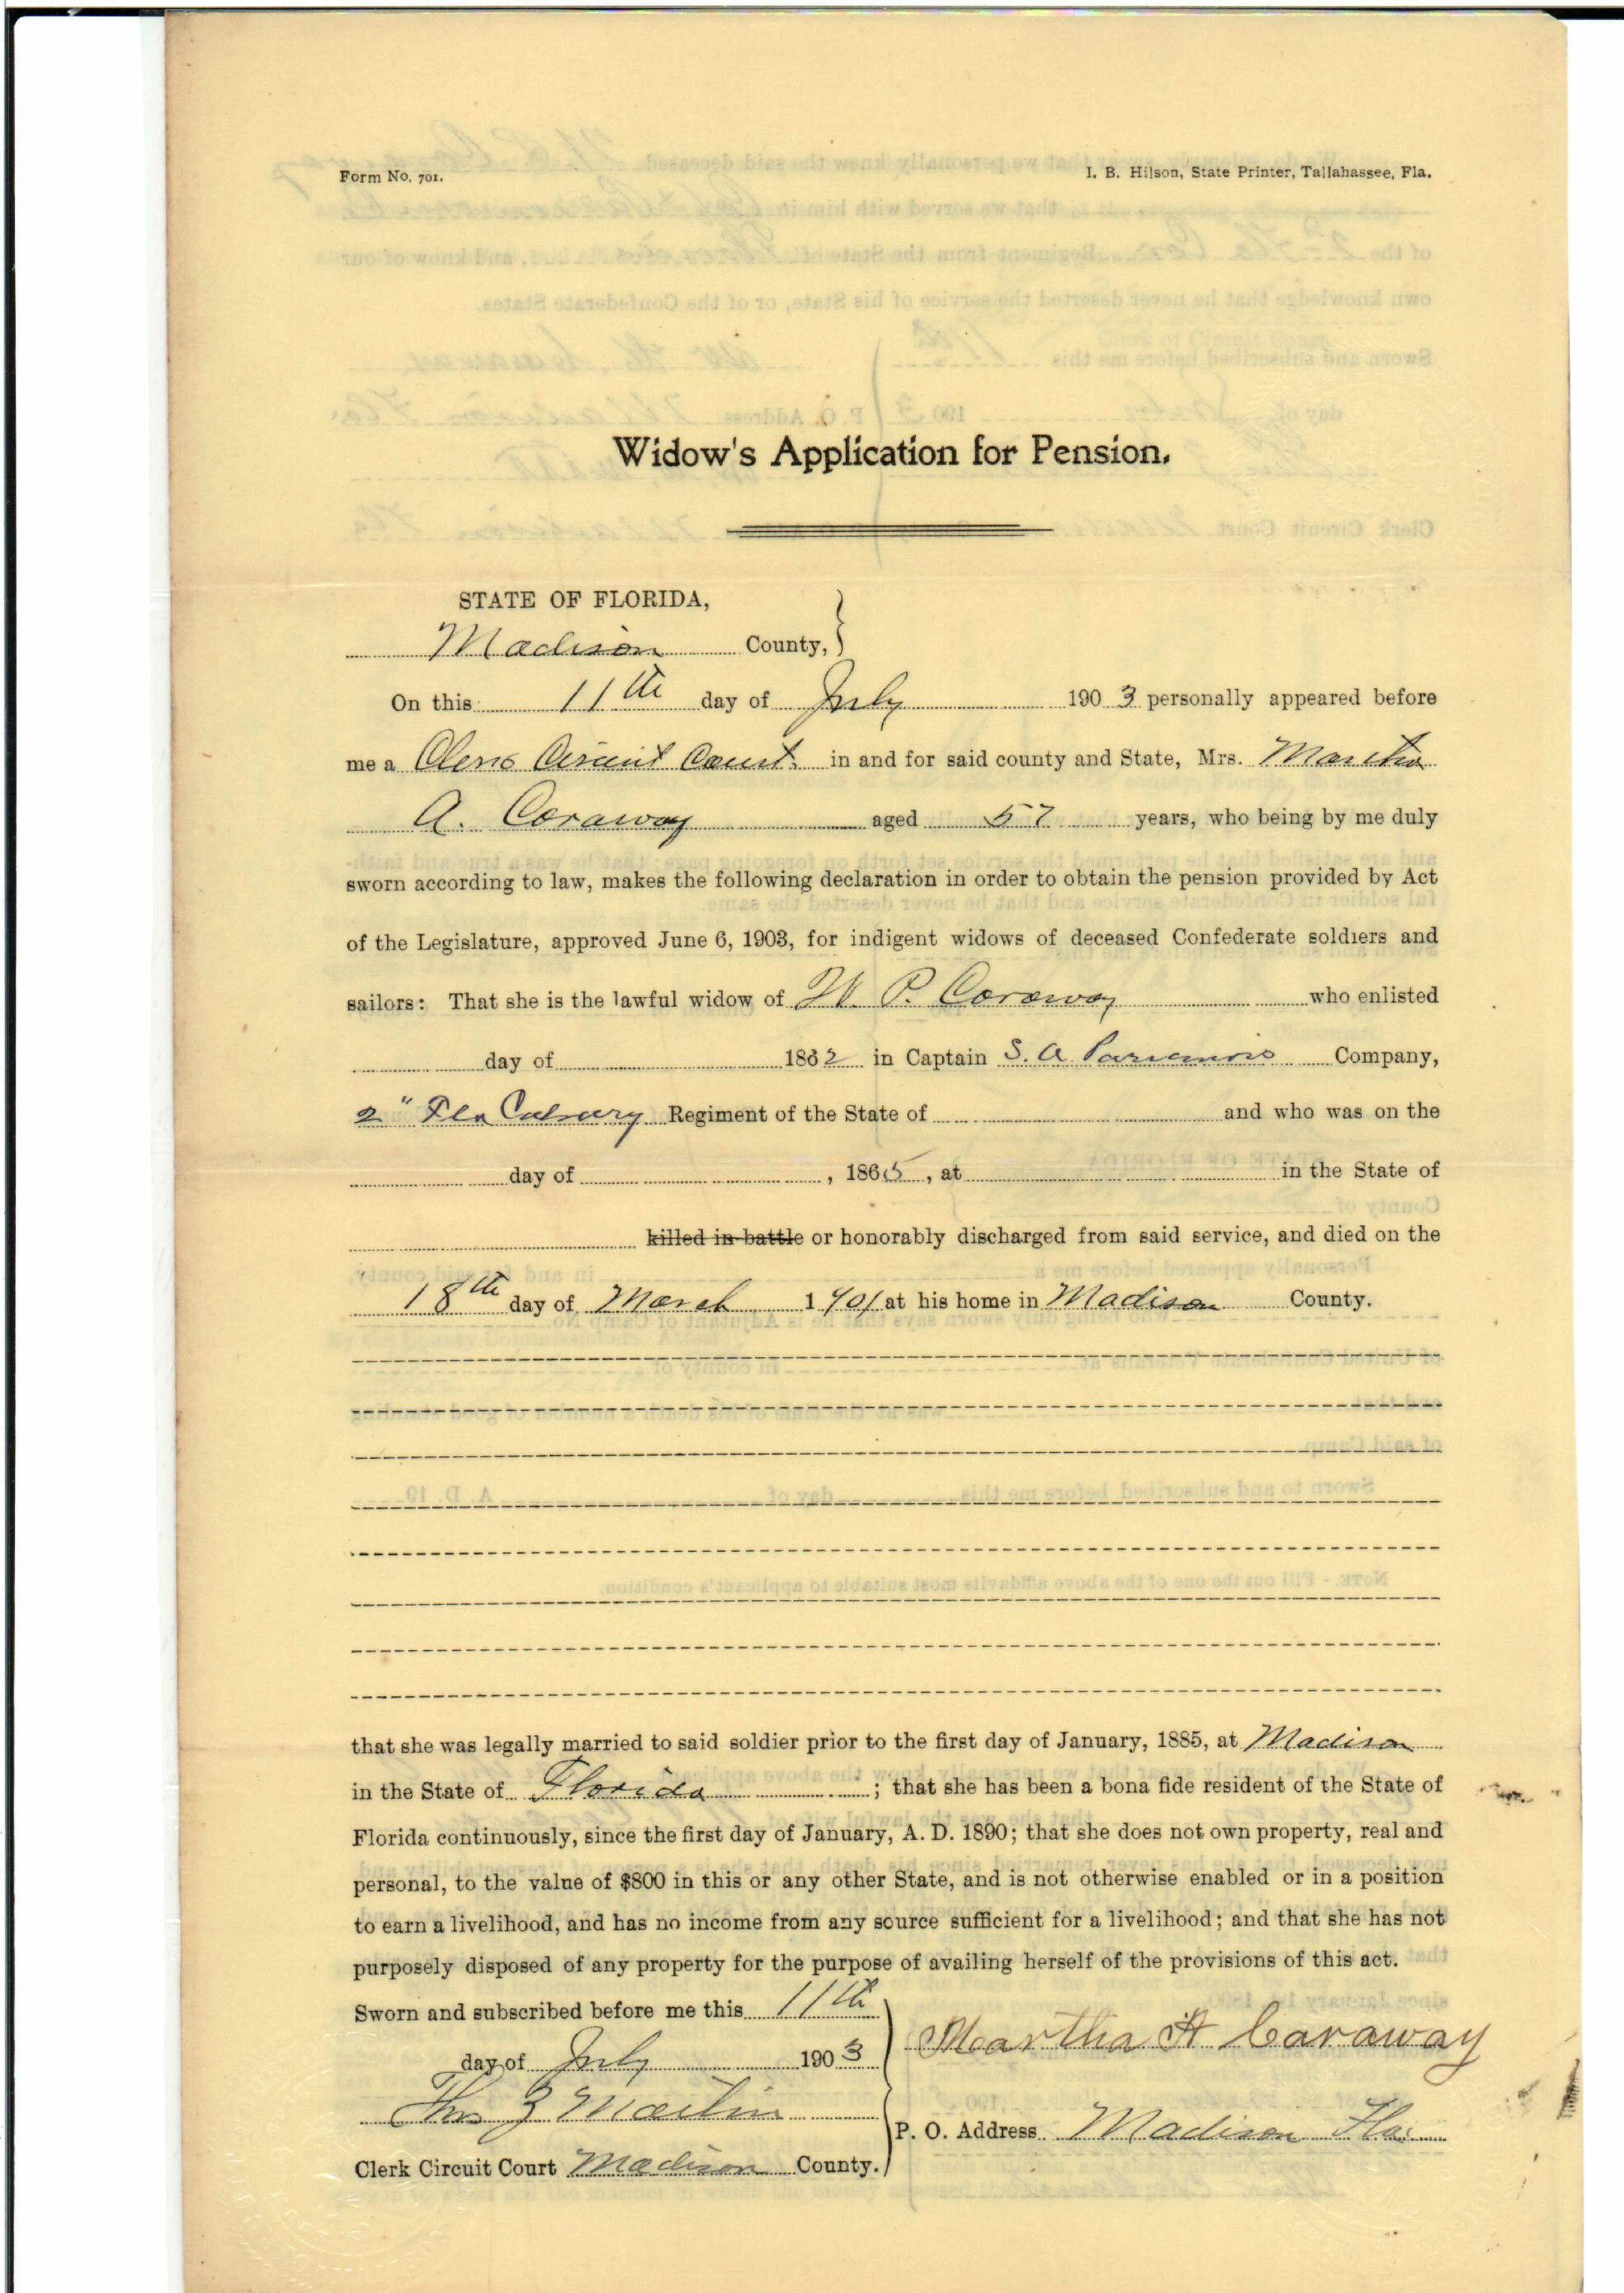 Form No. 701.
I. B. Hilson, State Printer, Tallahassee, Fla.
Widow's Application for Pension.
STATE OF FLORIDA,
Madison County,
On this 11th day of July 1903 personally appeared before
me a Clerk Circuit Court in and for said county and State, Mrs. Martha
A. Caraway aged 57 years, who being by me duly
sworn according to law, makes the following declaration in order to obtain the pension provided by Act
of the Legislature, approved June 6, 1903, for indigent widows of deceased Confederate soldiers and
sailors: That she is the lawful widow of W. P. Caraway who enlisted
day of 1862 in Captain S. A. Company,
2" Fla Calvary Regiment of the State of and who was on the
day of , 1865, at in the State of
killed in battle or honorably discharged from said service, and died on the
18th day of March 1901 at his home in Madison County.
that she was legally married to said soldier prior to the first day of January, 1885, at Madison
in the State of Florida ; that she has been a bona fide resident of the State of
Florida continuously, since the first day of January, A. D. 1890; that she does not own property, real and
personal, to the value of $800 in this or any other State, and is not otherwise enabled or in a position
to earn a livelihood, and has no income from any source sufficient for a livelihood; and that she has not
purposely disposed of any property for the purpose of availing herself of the provisions of this act.
Sworn and subscribed before me this 11th
day of July 1903
Martha A Caraway
Thos Z Martin
P. O. Address Madison Fla.
Clerk Circuit Court Madison County.